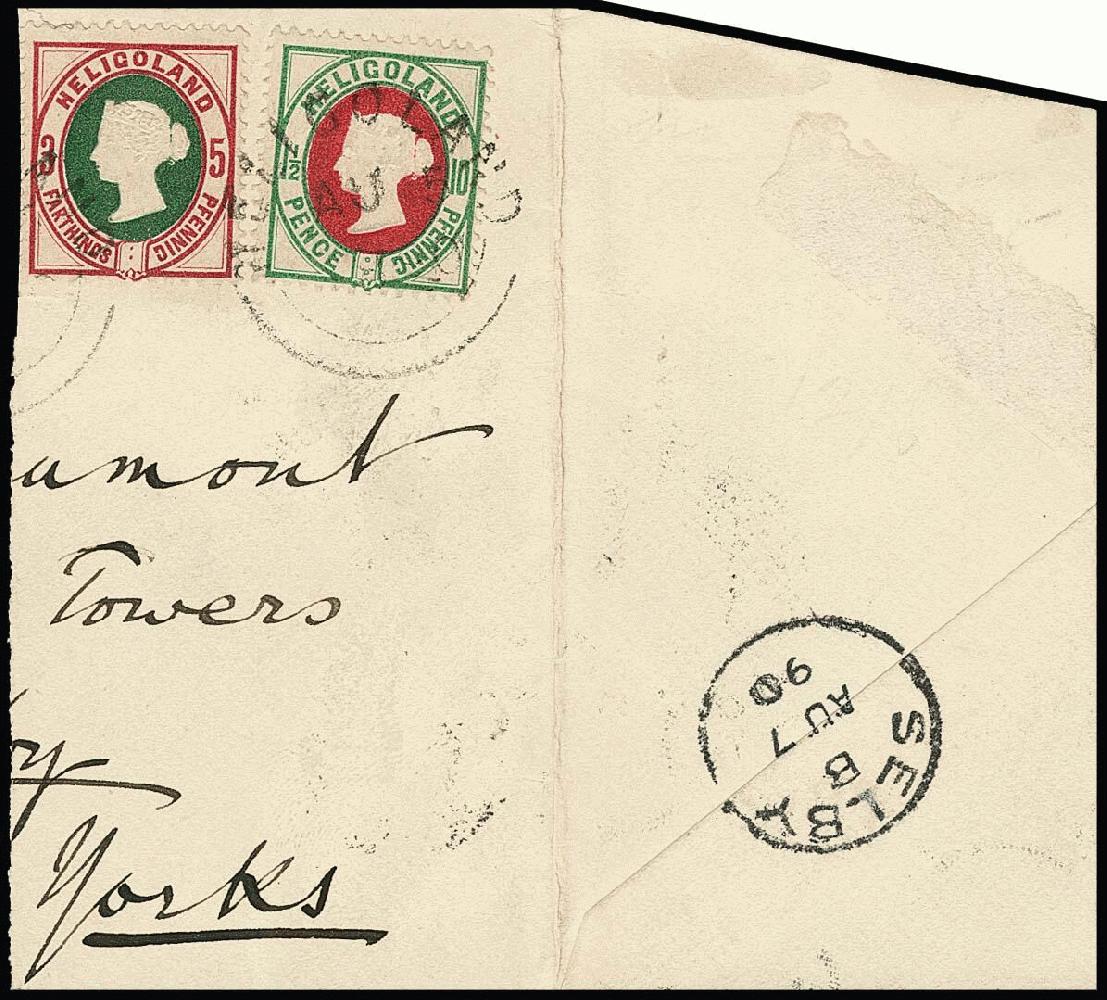 HELIGOLAND
3 5
FARTHINGS PFENNIG
HELIGOLAND
1½ 10
PENCE PFENNIG
HELIGOLAND
AU
umont
Towers
ry
Yorks
SELBY
B
AU 7
90